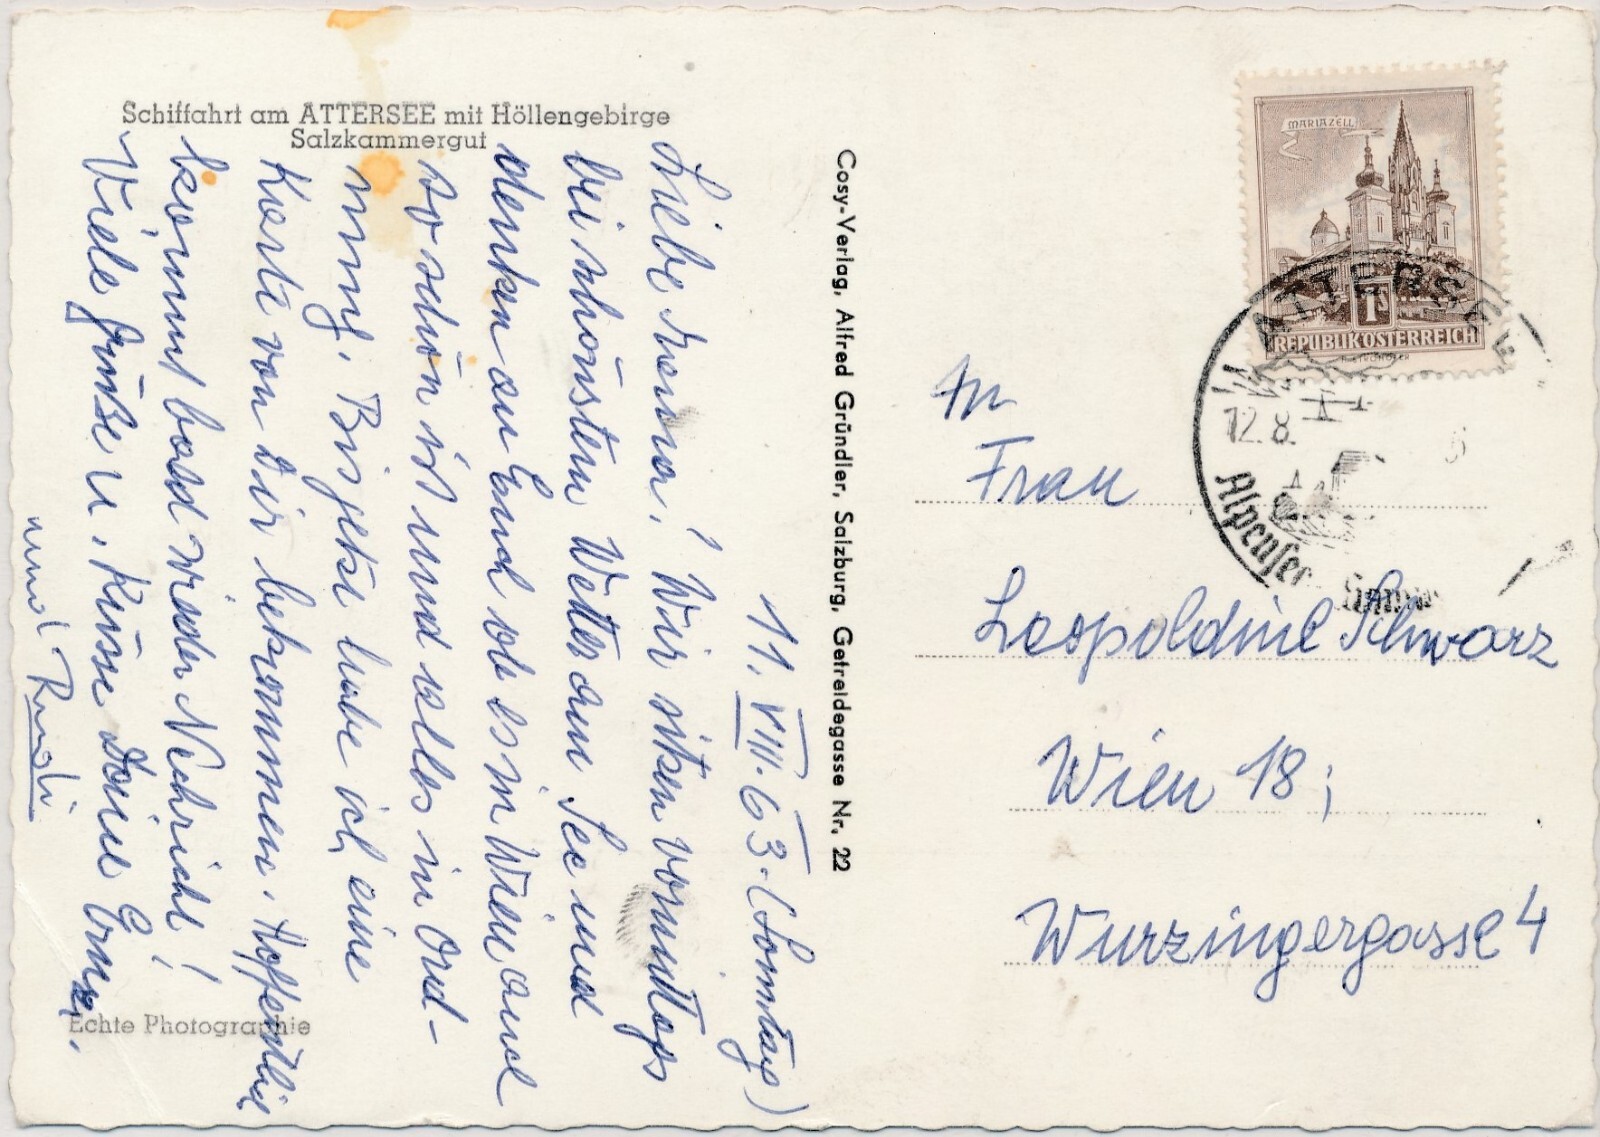 Schiffahrt am ATTERSEE mit Höllengebirge
Salzkammergut
11. VIII. 63. (Sonntag)
Liebe Mema! Wir sitzen vormittags
bei schönstem Wetter am See und
denken an Euch ob es in Wien auch
so schön ist und alles in Ord-
nung. Bis jetzt habe ich eine
Karte von Dir bekommen. Hoffentlich
kommt bald wieder Nachricht!
Viele Grüße u. Küsse Deine Erna.
und Rudi
Echte Photographie
Cosy-Verlag, Alfred Gründler, Salzburg, Getreidegasse Nr. 22
MARIAZELL
1S
REPUBLIK ÖSTERREICH
ATTERSEE
12.8.
An
Frau
Leopoldine Schwarz
Wien 18;
Wurzingergasse 4